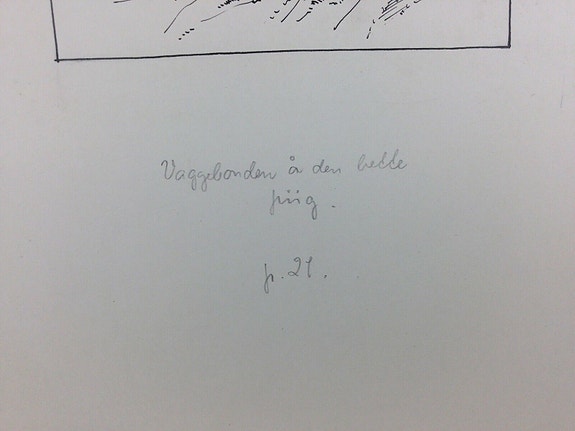 Vaggebonden å den bette
piig.
p. 21.